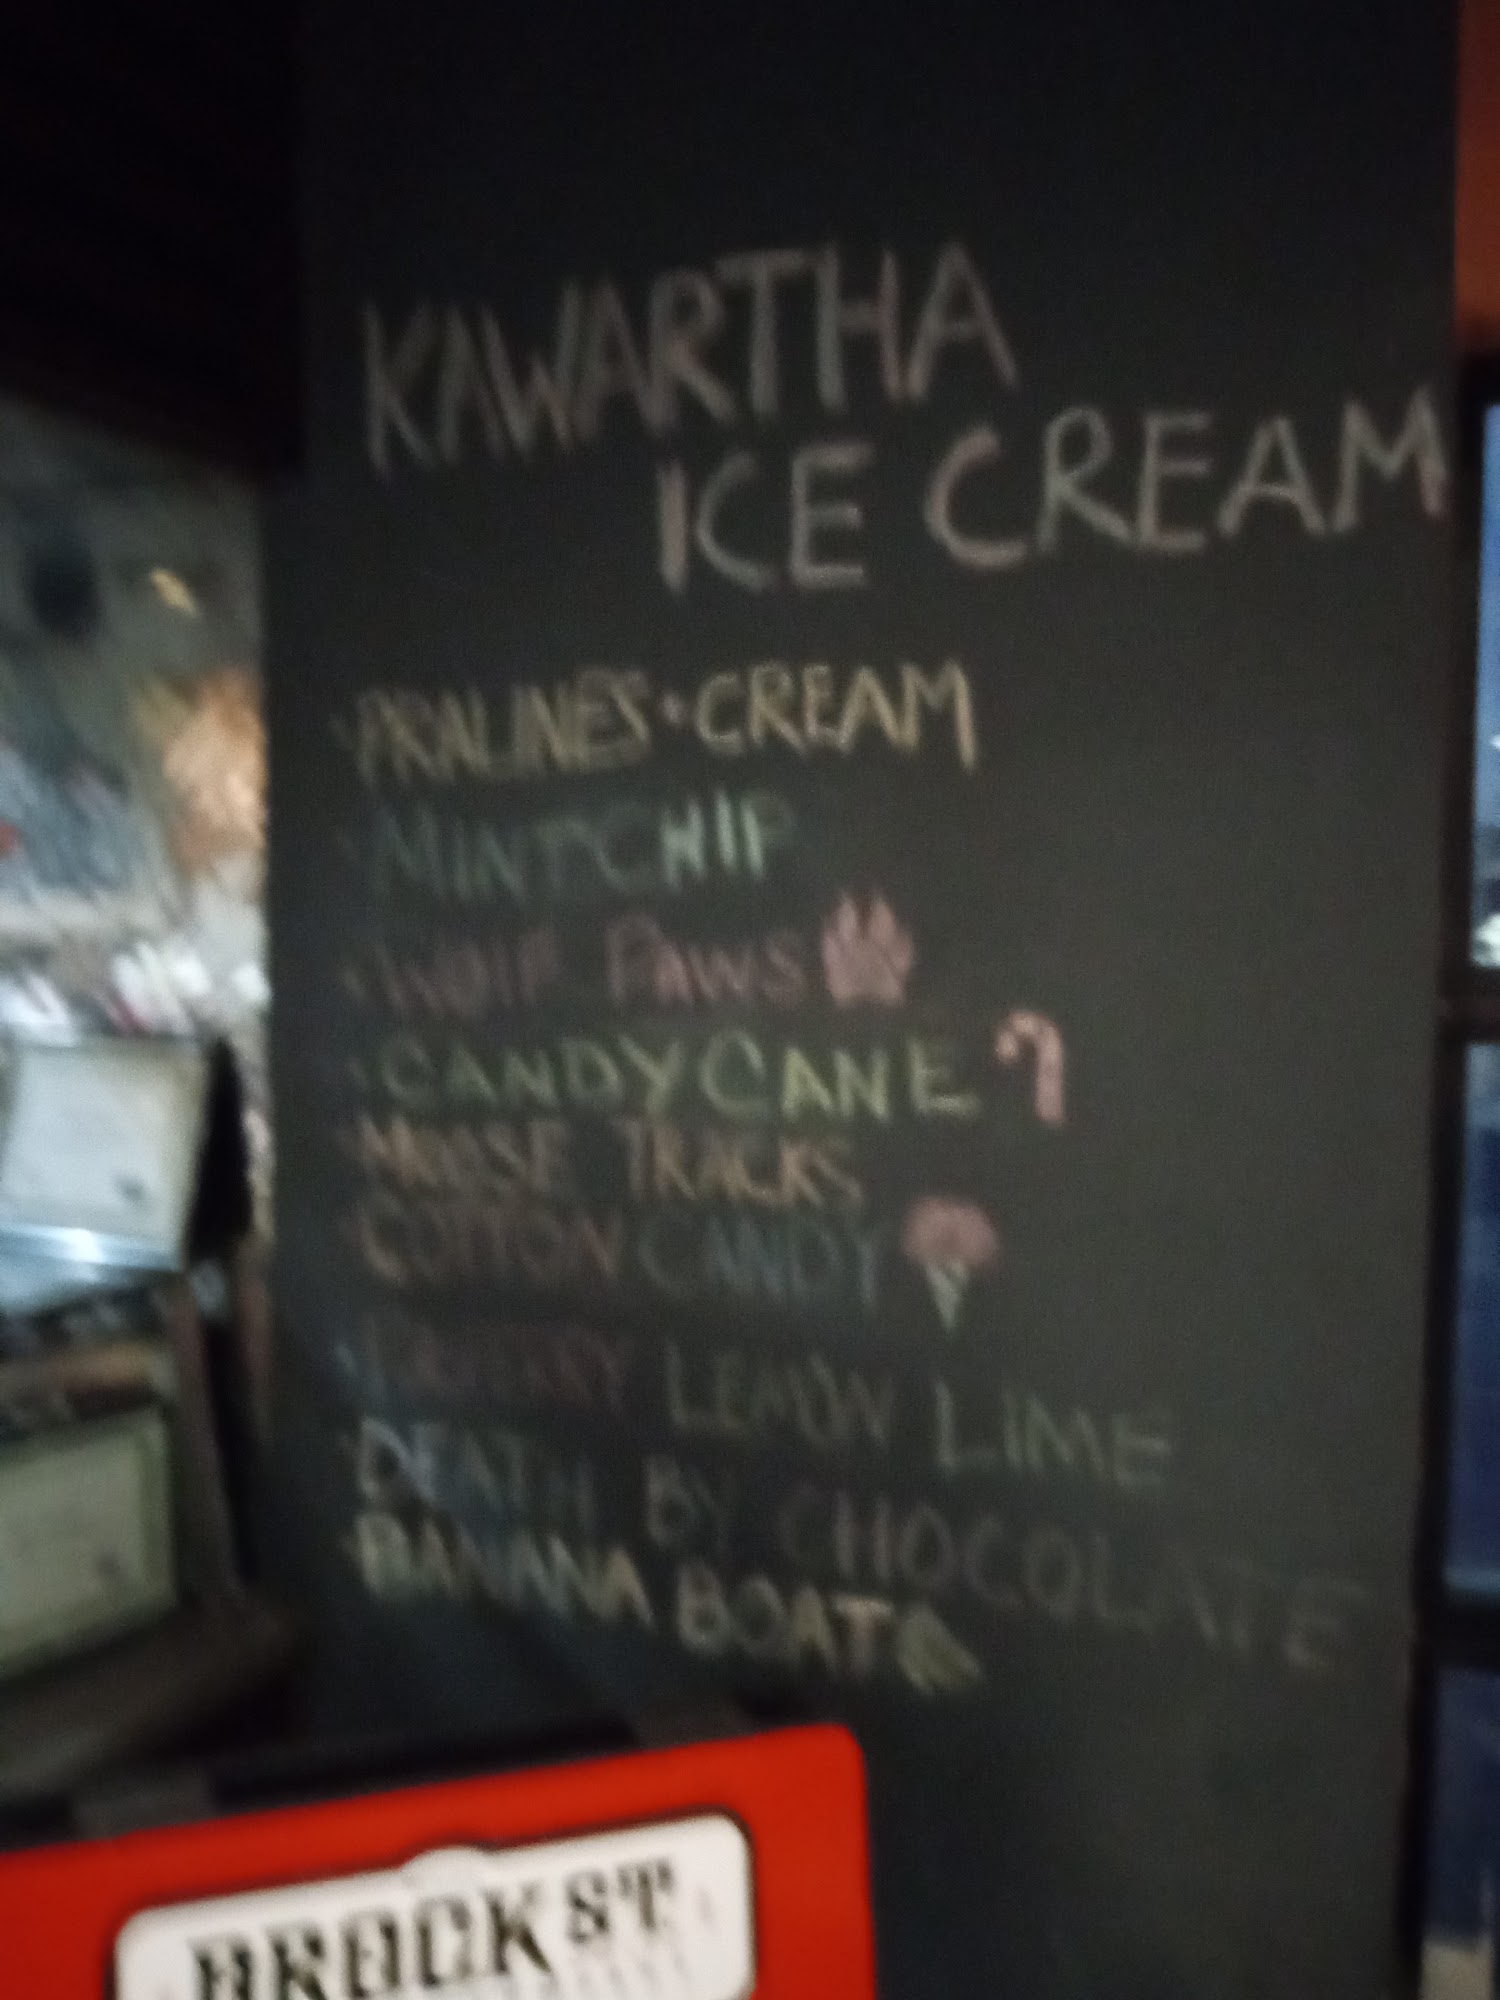 KAWARTHA
ICE CREAM
PRALINES • CREAM
MINT CHIP
WOLF PAWS
CANDY CANE
MOOSE TRACKS
COTTON CANDY
LEMON LIME
DEATH BY CHOCOLATE
BANANA BOAT
BROCK ST